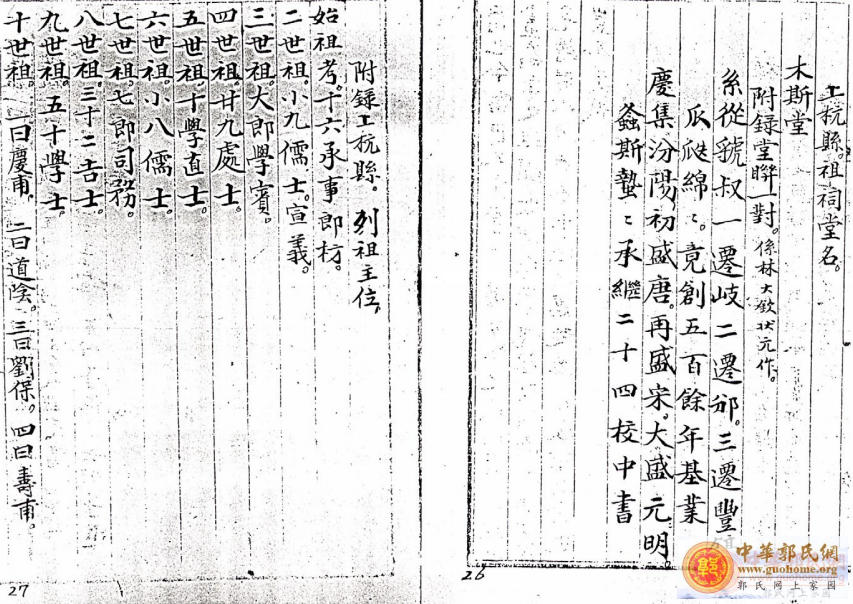 上杭縣。祖祠堂名。
木斯堂
附録堂聯一對。係林大欽状元作。
系從虢叔一遷岐二遷邠。三遷豐
瓜瓞綿〻。竟創五百餘年基業
慶集汾陽初盛唐。再盛宋。大盛元明。
螽斯蟄〻承繼二十四校中書
26
附録上杭縣。列祖主位。
始祖考。十六承事郎枋。
二世祖。小九儒士。宣義。
三世祖。大郎學賓。
四世祖。廿九處士。
五世祖。十學直士。
六世祖。小八儒士。
七世祖。七郎司務。
八世祖。三十二吉士。
九世祖。五十學士。
十世祖。一曰慶甫。二曰道陰。三曰劉保。四曰壽甫。
27
中華郭氏網
www.guohome.org
郭氏網上家園